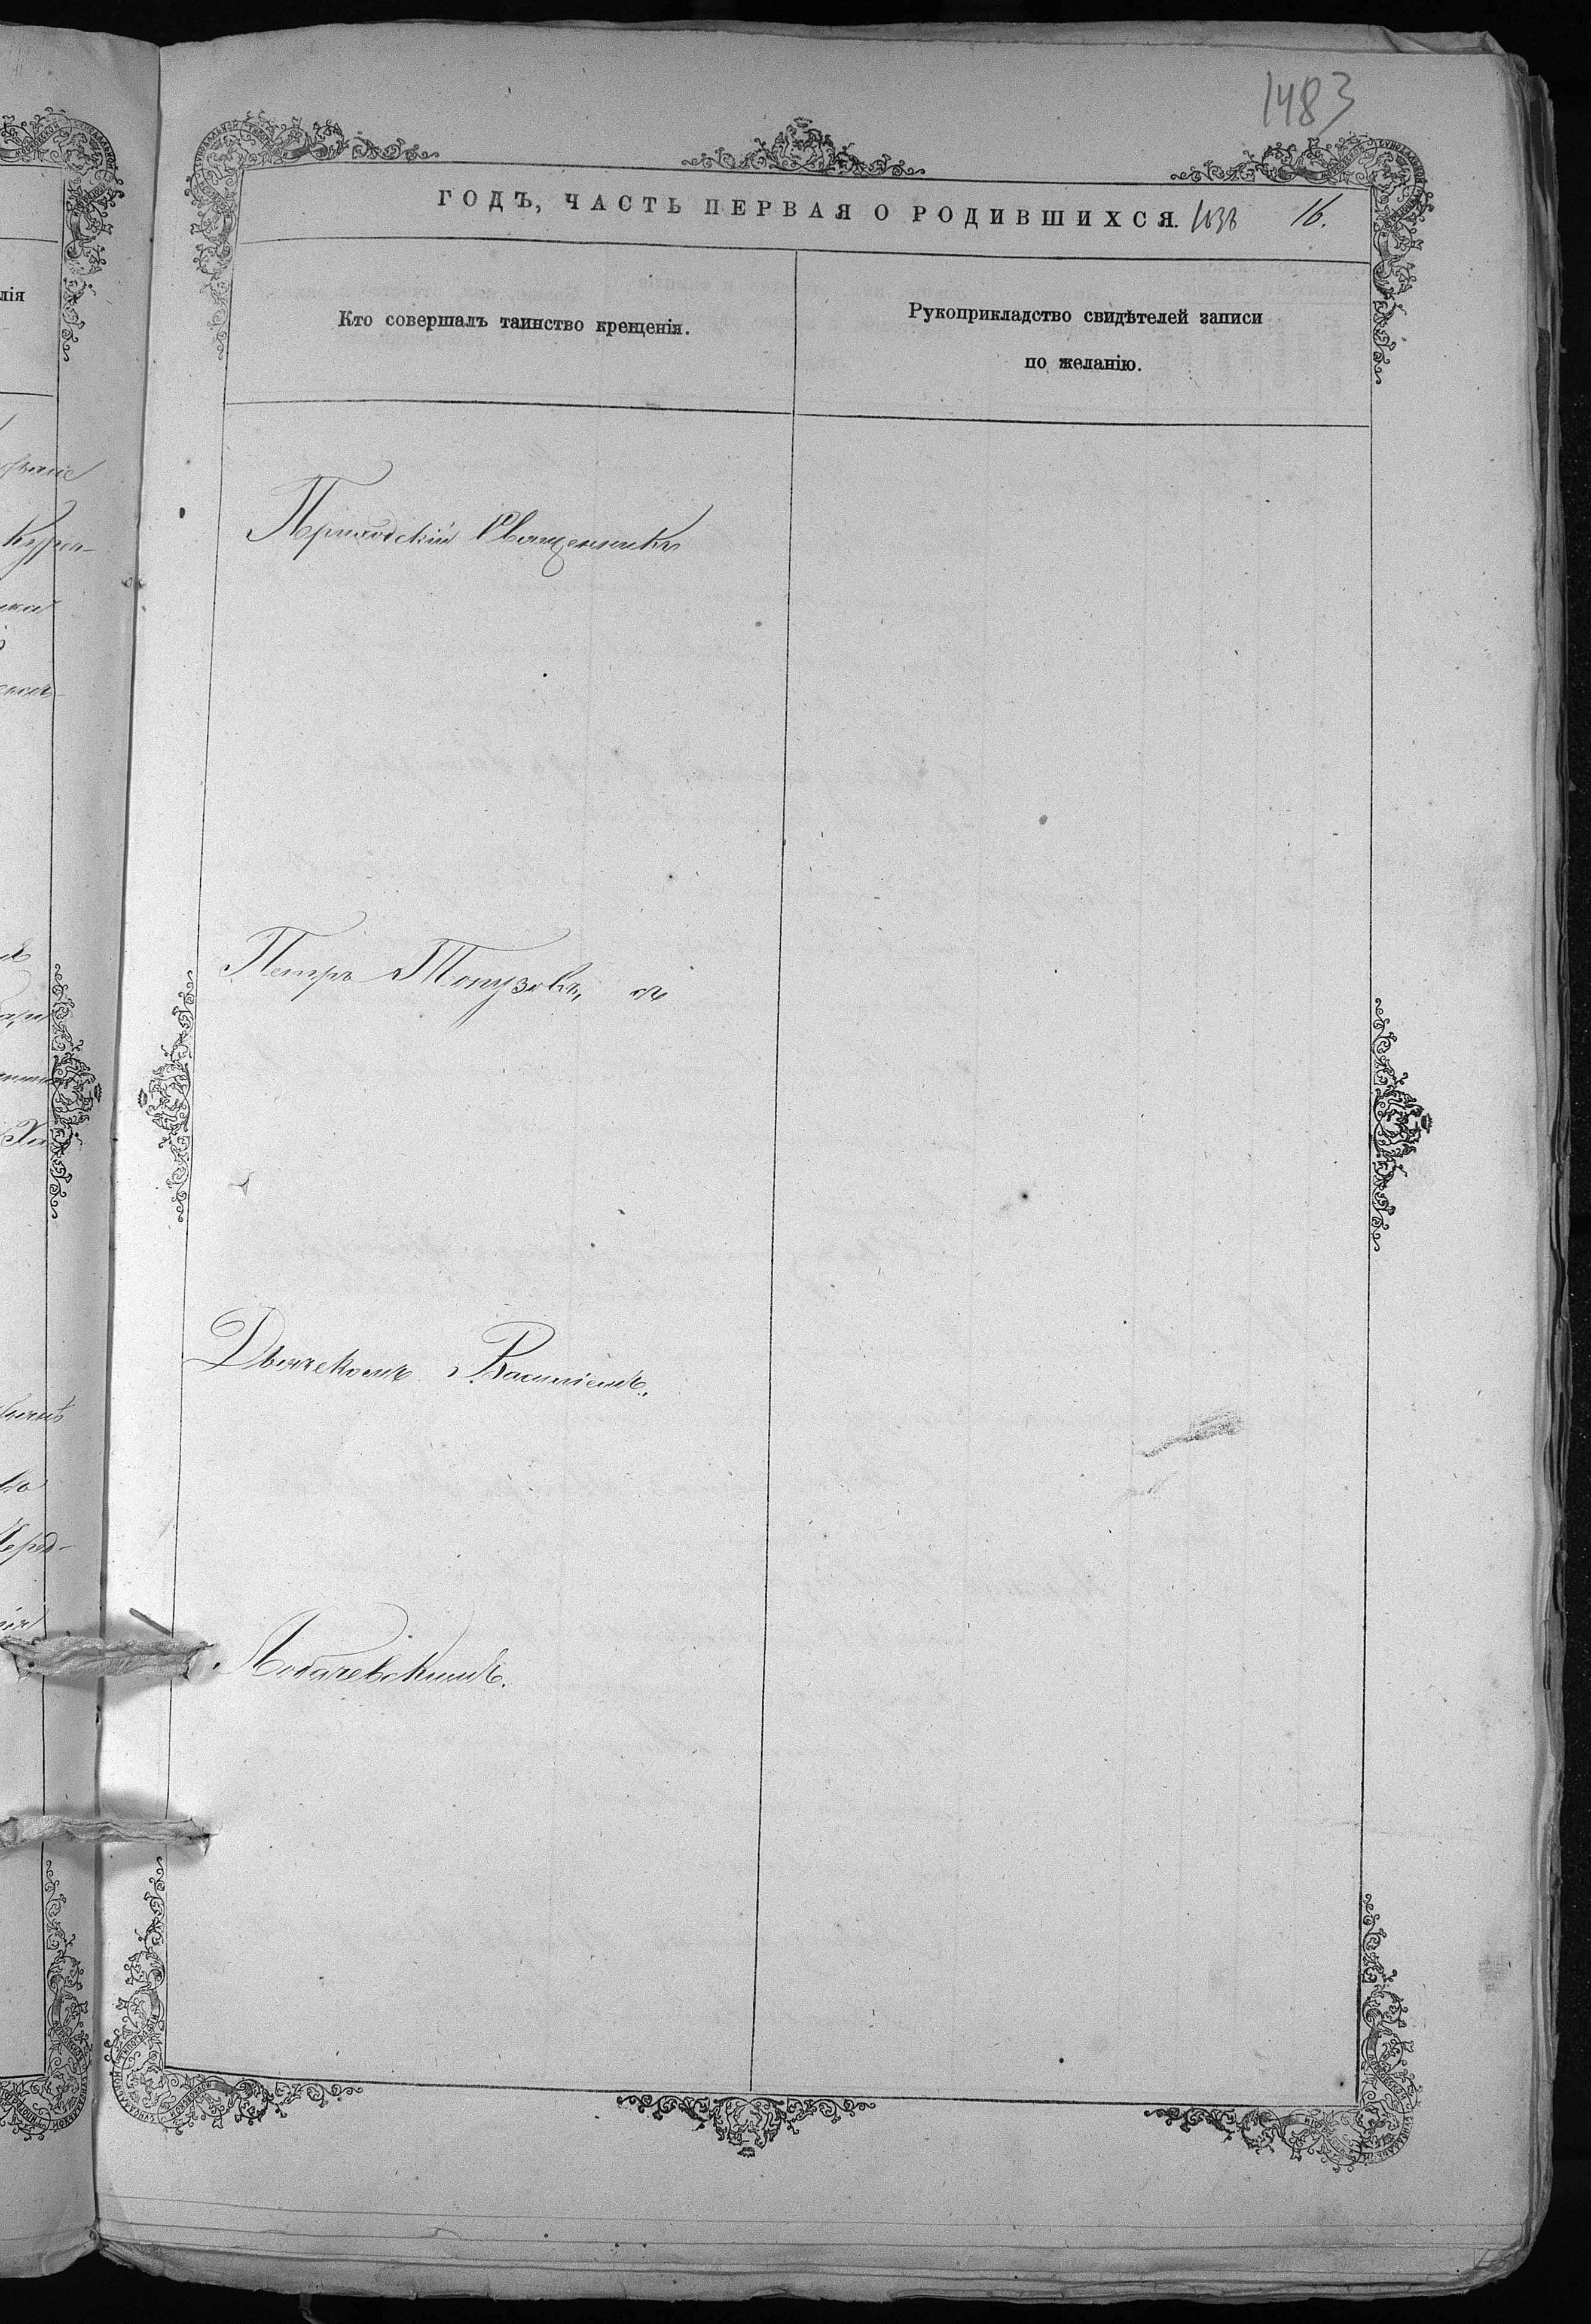 1483
ГОДЪ, ЧАСТЬ ПЕРВАЯ О РОДИВШИХСЯ. 16.
лія
Кто совершалъ таинство крещенія.
Рукоприкладство свидѣтелей записи
по желанію.
Приходскій Священникъ
Петръ Топузовъ, съ
Дьячекомъ Василіемъ
Лобачевскимъ.